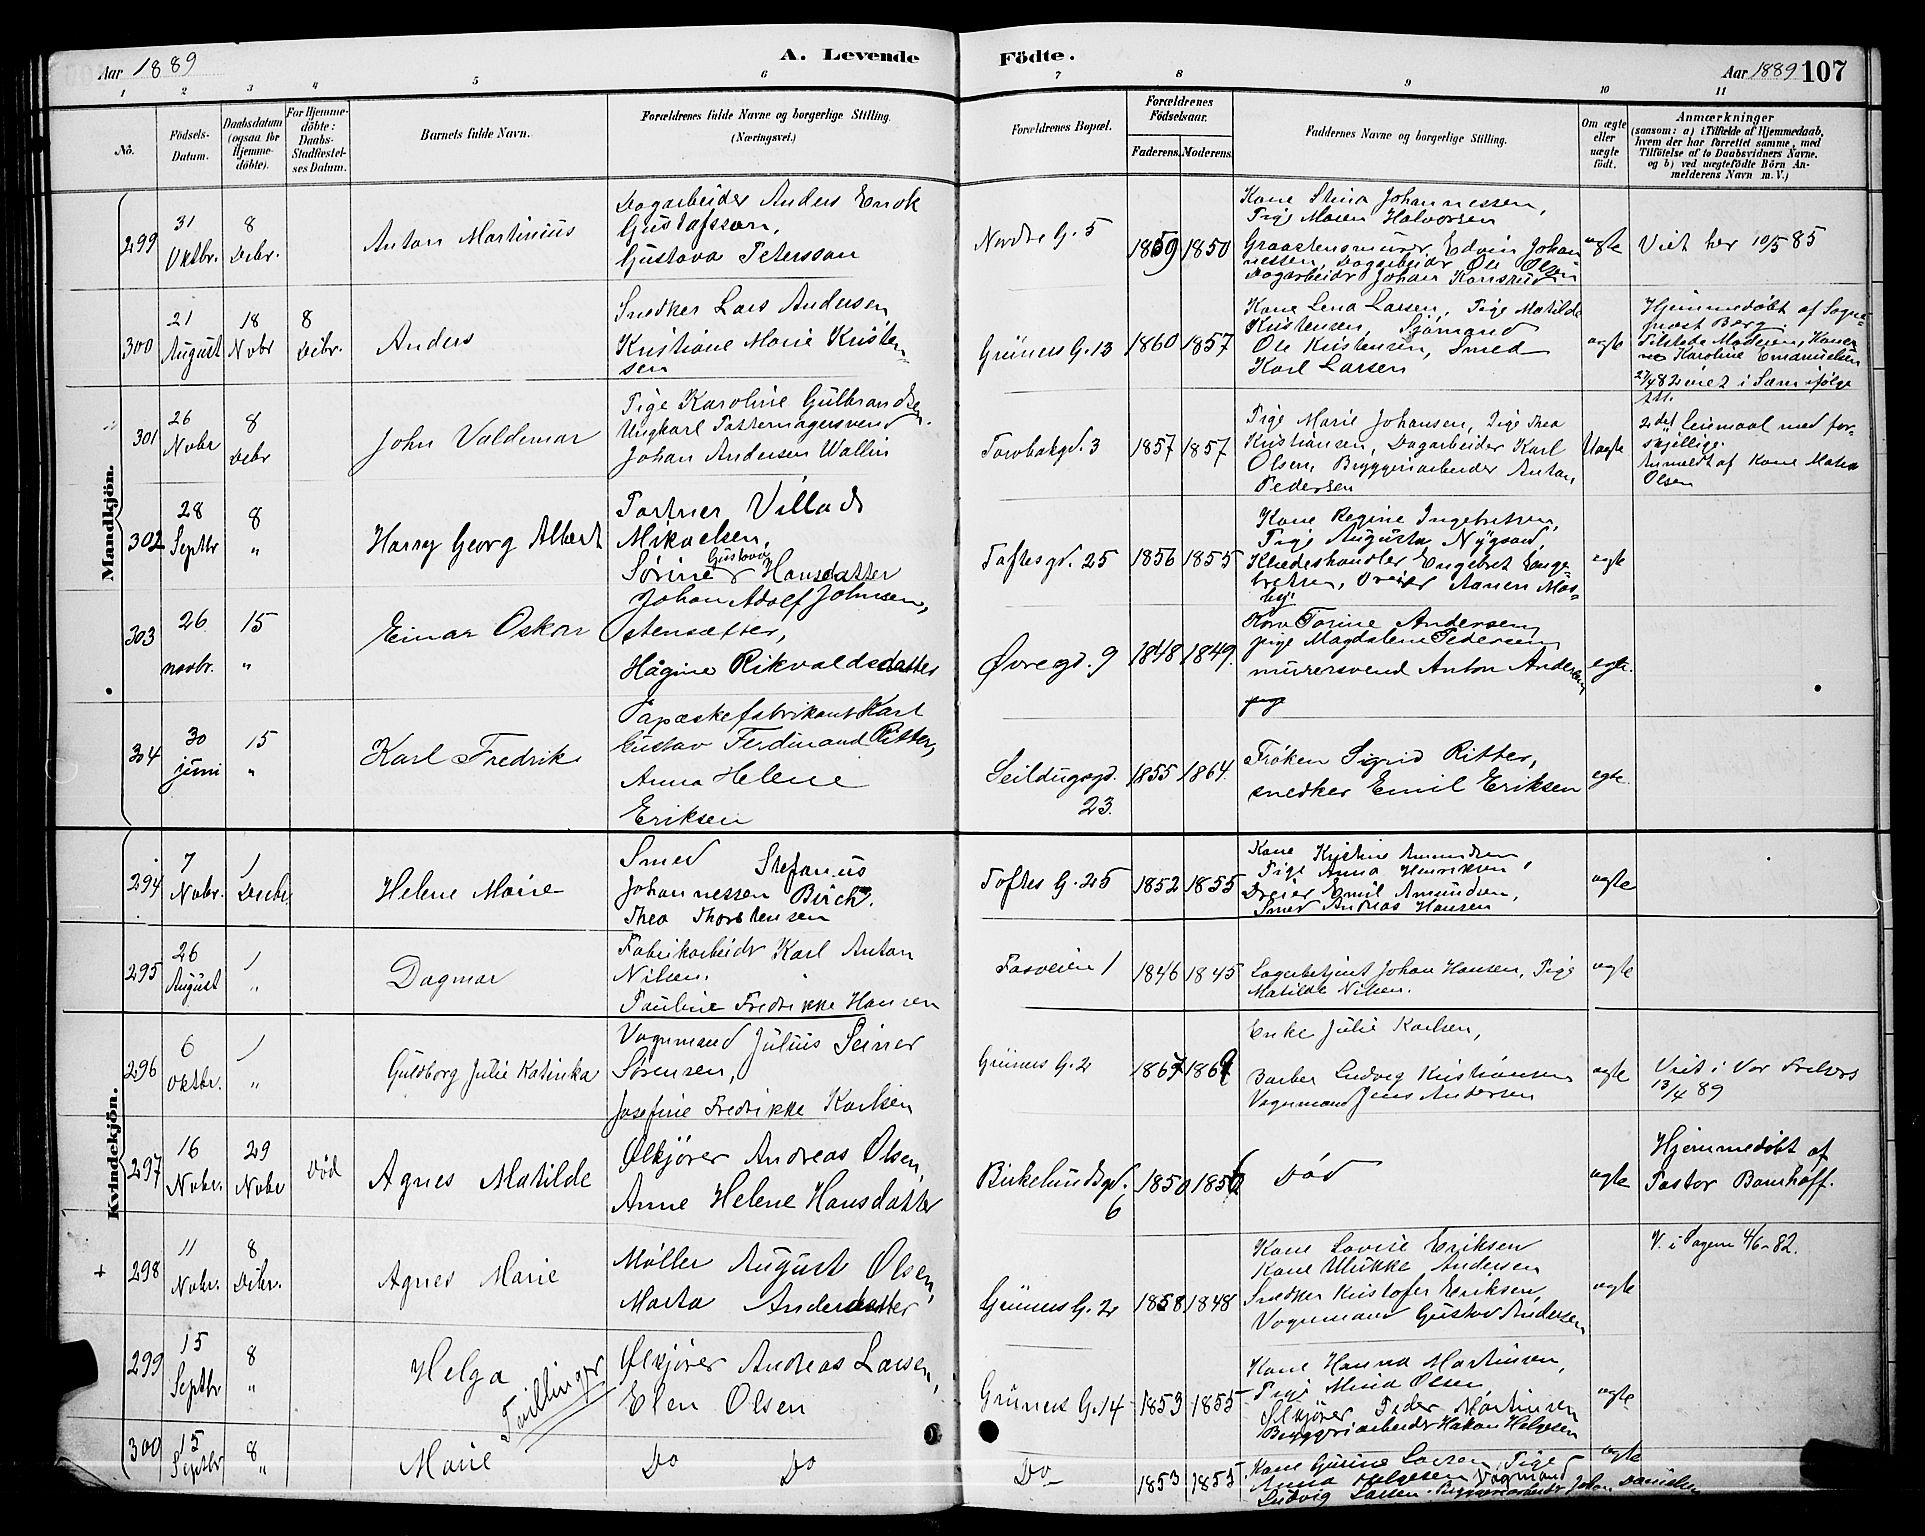 Aar 1889
A. Levende
Födte.
Aar 1889 107
1 2 3 4 5 6 7 8 9 10 11
No.
Födsels-
Datum.
Daabsdatum
(ogsaa for
Hjemme-
döbte).
For Hjemme-
döbte:
Daabs-
Stadfæstel-
ses Datum.
Barnets fulde Navn.
Forældrenes fulde Navne og borgerlige Stilling.
(Næringsvei.)
Forældrenes Bopæl.
Forældrenes
Födselsaar.
Faderens. Moderens.
Faddernes Navne og borgerlige Stilling.
Om ægte
eller
uægte
födt.
Anmærkninger
(saasom: a) i Tilfælde af Hjemmedaab,
hvem der har forrettet samme, med
Tilföielse af to Daabsvidners Navne.
og b) ved uægtefödte Börn An-
melderens Navn m. V.)
Mandkjön.
299
31
Oktbr.
8
Debr.
Anton Martinius
Dagarbeider Anders Enok
Gustafsson,
Gustava Petersson
Nordre G. 5
1859 1850
Kone Stina Johannessen,
Pige Maren Halvorsen
Graastensmurer Edvin Johan
nessen, Dagarbeidr Ole Olsen
Dagarbeidr Johan
ægte
Viet her 10/5 85
300
21
August
18
Nobr
8
Debr.
Anders
Snedker Lars Andersen
Kristiane Marie Kristen-
sen
Grüners G. 13
1860 1857
Kone Lena Larsen, Pige Matilde
Kristensen, Sjömand
Ole Kristensen, Smed
Karl Larsen
ægte
Hjemmedøbt af Sogne-
prest Berg.
Tilstede Moderen, Kone
Karoline Emanuelsen
27/4 82 viet i ifølge
Att.
301
26
Nobr
8
Debr
John Valdemar
Pige Karoline Gulbrandsen.
Ungkarl Pottemagersvend
Johan Andersen Wallin
Torvbakgd. 3
1857 1857
Pige Marie Johansen, Pige Thea
Kristiansen, Dagarbeider Karl
Olsen, Bryggeriarbeider Anton
Pedersen
Uægte
2det Leiermaal med for-
skjellige.
Anmeldt af Kone
Olsen
302
28
Septbr
8
"
Harry Georg Albert
Portner Villads
Mikaelsen,
Gustava
Sørine Hansdatter
Toftesgd. 25
1856 1855
Kone Regine Ingebretsen,
Pige Augusta Nygård,
Klædeshandler Engebret Inge
bretsen, Dreier Aanen Mos-
by.
ægte
303
26
novbr.
15
"
Einar Oskar
Johan Adolf Johnsen,
stensætter,
Hågine Rikvaldsdatter
Øvregd. 9
1848 1849.
Kone Torine Andersen,
pige Magdalene Pedersen
murersvend Anton Andersen
pige
egte.
304
30
juni
15
"
Karl Fredrik
Papæskefabrikant Karl
Gustav Ferdinand Ritter,
Anna Helene
Eriksen
Seildugsgd.
23.
1855 1864.
Frøken Sigrid Ritter,
snedker Emil Eriksen
egte.
Kvindekjön.
294
7
Nobr.
1
Decbr
Helene Marie
Smed Stefanus
Johannessen Birch.
Thea Thorstensen
Toftes G. 25
1852 1855
Kone Kristine Amundsen,
Pige Anna Henriksen,
Dreier Emil Amundsen,
Smed Andreas Hansen
ægte
295
26
August
1
"
Dagmar
Fabrikarbeidr Karl Anton
Nilsen.
Pauline Fredrikke Hansen
Fosveien 1
1846 1845
Lagerbetjent Johan Hansen, Pige
Matilde Nilsen.
ægte
296
6
Oktbr.
1
"
Guldborg Julie Katinka
Vognmand Julius Seiner
Sørensen,
Josefine Fredrikke Karlsen
Grüners G. 2
1867 1869
Enke Julie Karlsen,
Barber Ludvig Kristiansen
Vognmand Jens Andersen
ægte
Viet i Vor Frelsers
13/4 89
297
16
Nobr.
29
Nobr
Död
Agnes Matilde
Ølkjører Andreas Olsen,
Anne Helene Hansdatter
Birkelundsgd.
6
1850 1856
Död
ægte
Hjemmedøbt af
Pastor Bomhoff.
+
298
11
Nobr.
8
Debr.
Agnes Marie
Møller August Olsen,
Marta Andersdatter
Grüners G. 2
1858 1848
Kone Lovise Eriksen
Kone Ulrikke Andersen
Snedker Kristofer Eriksen,
Vognmand Gustav Andersen
ægte
V. i Sagene 4/6-82.
299
15
Septbr
8
"
Helga
Tvillinger
Ølkjører Andreas Larsen,
Elen Olsen
Grüners G. 14
1853 1855
Kone Hanna Martinsen,
Pige Mina Olsen
Ølkjører Peder Martinsen
Bryggeriarbeider Hakon Helgesen
ægte
300
15
Septbr
8
"
Marie
Do Do
Do
1853 1855
Kone Gusine Larsen, Pige
Anna Helgesen, Vognmand
Ludvig Larsen. Bryggeriarbeider Johan Danielsen
ægte